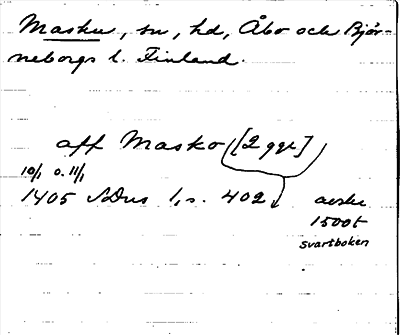 Masku, sn, hd, Åbo och Björ-
neborgs l. Finland.
aff Masko [2 ggr]
10/1 o. 11/1
1405 SDns 1, s. 402
avskr
1500t
svartboken